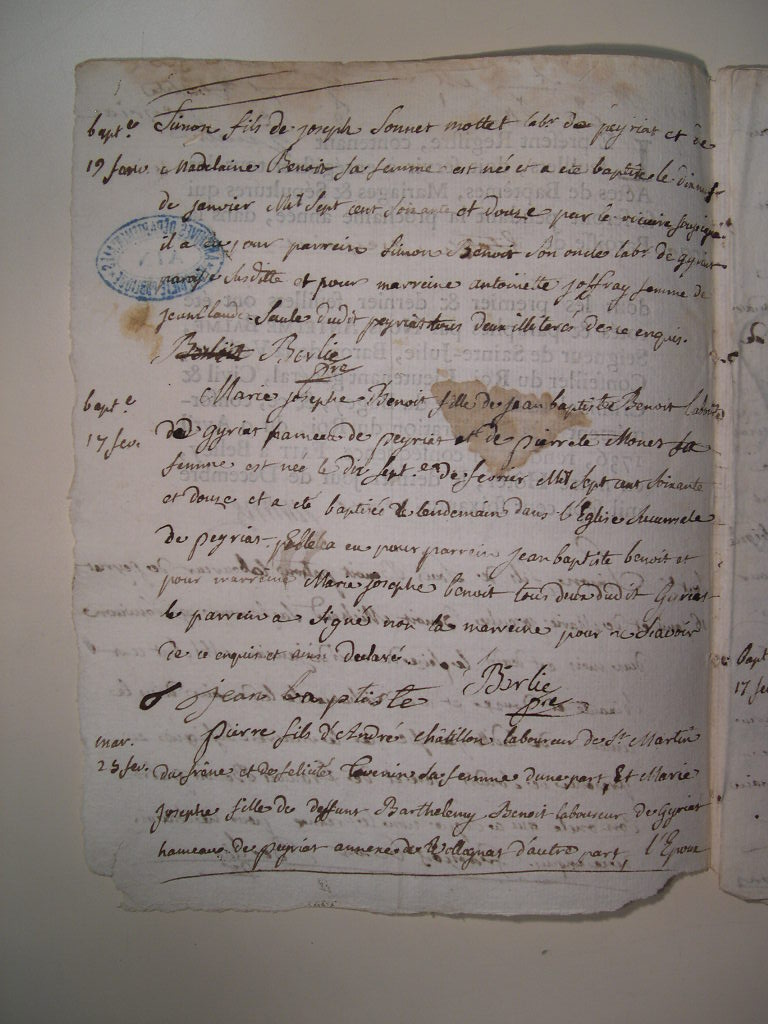 bapt.e Simon fils de joseph Sonnet mottet labr. de peyriat et de
19 janv. Madelaine Benoit sa femme est née et a eté baptise le dixneuf
de janvier Mil Sept cent Soixante et douze par le vicaire soussigné
il a eu pour parrein Simon Benoit Son oncle labr. de gyriat
paroisse Susditte et pour marreine antoinette joffray femme de
jean Claude Saule dudit peyriat tous deux illiteres de ce enquis.
Berlie
pre
bapt.e Marie josephe Benoit fille de jean baptiste Benoit
17 fev. de gyriat hameau de peyriat et de pierrete Monet sa
femme est née le dix Sept.e de fevrier Mil Sept cent Soixante
et douze et a eté baptisée le lendemain dans l'Eglise Succursale
de peyriat Elle a eu pour parrein jean baptiste benoit et
pour marreine Marie josephe benoit tous deux dudit Gyriat
le parrein a Signé non la marreine pour ne Scavoir
de ce enquis et ainsi declaré
jean baptiste Berlie
pre
mar. pierre fils d'André châtillon laboureur de St. Martin
25 fev. du frâne et de felicité tavernin sa femme dune part, Et Marie
josephe fille de deffunt Barthelemy Benoit laboureur de Gyriat
hameau de peyriat annexe de Vollognat d'autre part, l'Epoux